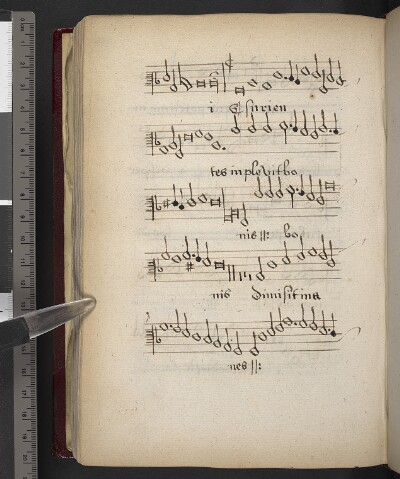 i Esurien
tes inplevit bo
nis ij: bo
nis dimisit ina
nes ij: